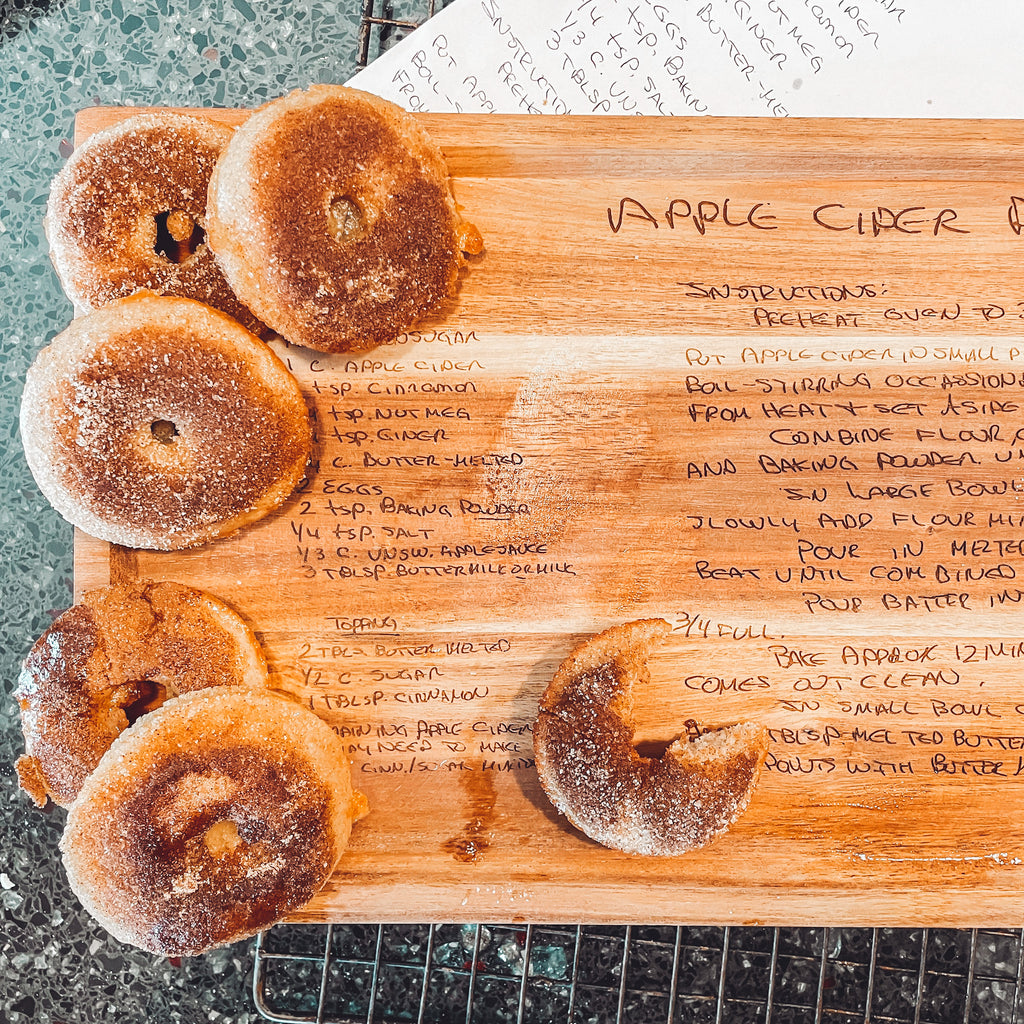 PUT
BOIL
FROM
PUT APPL
INSTRUCTION
PREH
1/4 tsp. SAL
1/3 C. UN
3 TBLSP
EGGS
tsp. BAKIN
BUTTER-ME
GINGER
NUTMEG
CIDER
SUGAR
APPLE CIDER
INSTRUCTIONS:
PREHEAT OVEN TO
PUT APPLE CIDER IN SMALL P
BOIL-STIRRING OCCASSIONA
FROM HEAT + SET ASIDE
COMBINE FLOUR,
AND BAKING POWDER. UN
IN LARGE BOWL
SLOWLY ADD FLOUR MI
POUR IN MELTE
BEAT UNTIL COMBINED
POUR BATTER INT
3/4 FULL.
BAKE APPROX. 12 MIN
COMES OUT CLEAN.
IN SMALL BOWL
TBLSP MELTED BUTTER
DONUTS WITH BUTTER
SUGAR
1 C. APPLE CIDER
tsp CINNAMON
tsp. NUTMEG
tsp. GINGER
C. BUTTER-MELTED
EGGS
2 tsp. BAKING POWDER
1/4 tsp. SALT
1/3 C. UNSW. APPLESAUCE
3 TBLSP. BUTTERMILK OR MILK
TOPPING
2 TBLS. BUTTER MELTED
1/2 C. SUGAR
1 TBLSP CINNAMON
AINING APPLE CIDER
MAY NEED TO MAKE
CINN./SUGAR